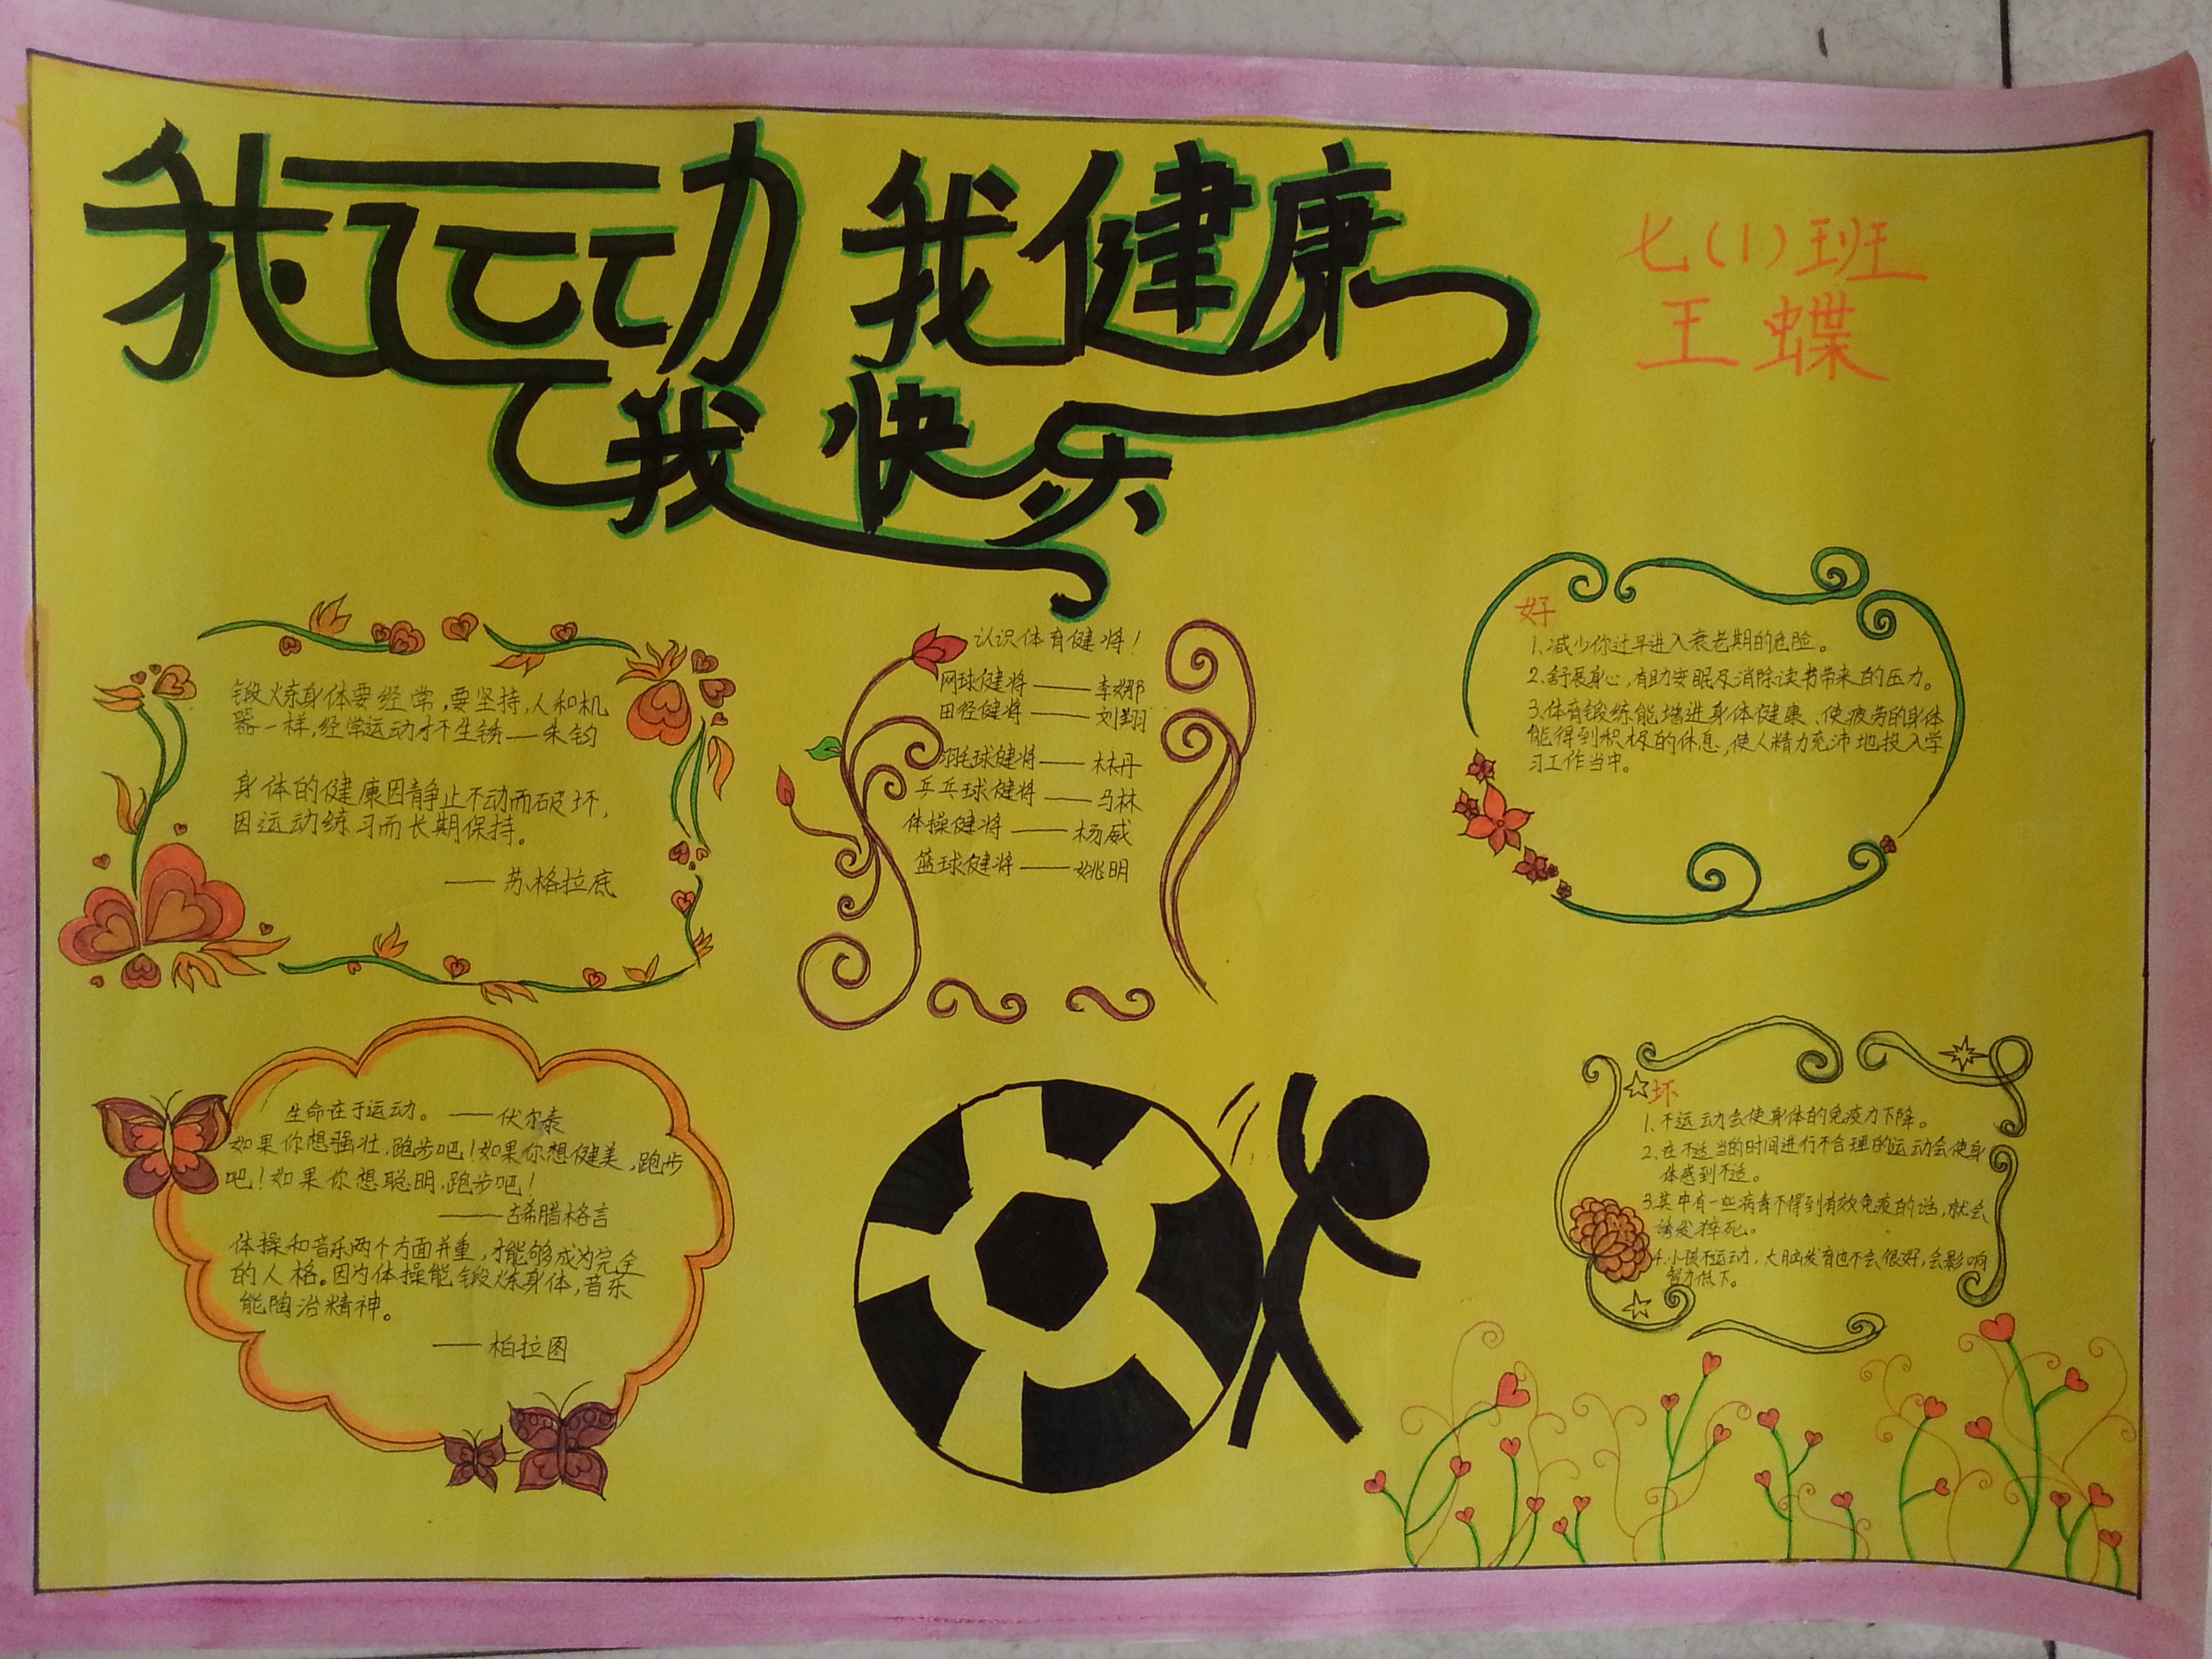 我运动 我健康
我快乐
七(1)班
王蝶
锻炼身体要经常,要坚持,人和机
器一样,经常运动才不生锈——朱钧
身体的健康因静止不动而破坏,
因运动练习而长期保持。
——苏格拉底
认识体育健将!
网球健将——李娜
田径健将——刘翔
羽毛球健将——林丹
乒乓球健将——马林
体操健将——杨威
篮球健将——姚明
好
1.减少你过早进入衰老期的危险。
2.舒展身心,有助安眠及消除读书带来的压力。
3.体育锻练能增进身体健康、使疲劳的身体
能得到积极的休息,使人精力充沛地投入学
习工作当中。
生命在于运动。——伏尔泰
如果你想强壮,跑步吧!如果你想健美,跑步
吧!如果你想聪明,跑步吧!
——古希腊格言
体操和音乐两个方面并重,才能够成为完全
的人格。因为体操能锻炼身体,音乐
能陶冶精神。
——柏拉图
坏
1.不运动会使身体的免疫力下降。
2.在不适当的时间进行不合理的运动会使身
体感到不适。
3.其中有一些病毒不得到有效免疫的话,就会
诱发猝死。
4.小孩不运动,大脑发育也不会很好,会影响
智力低下。